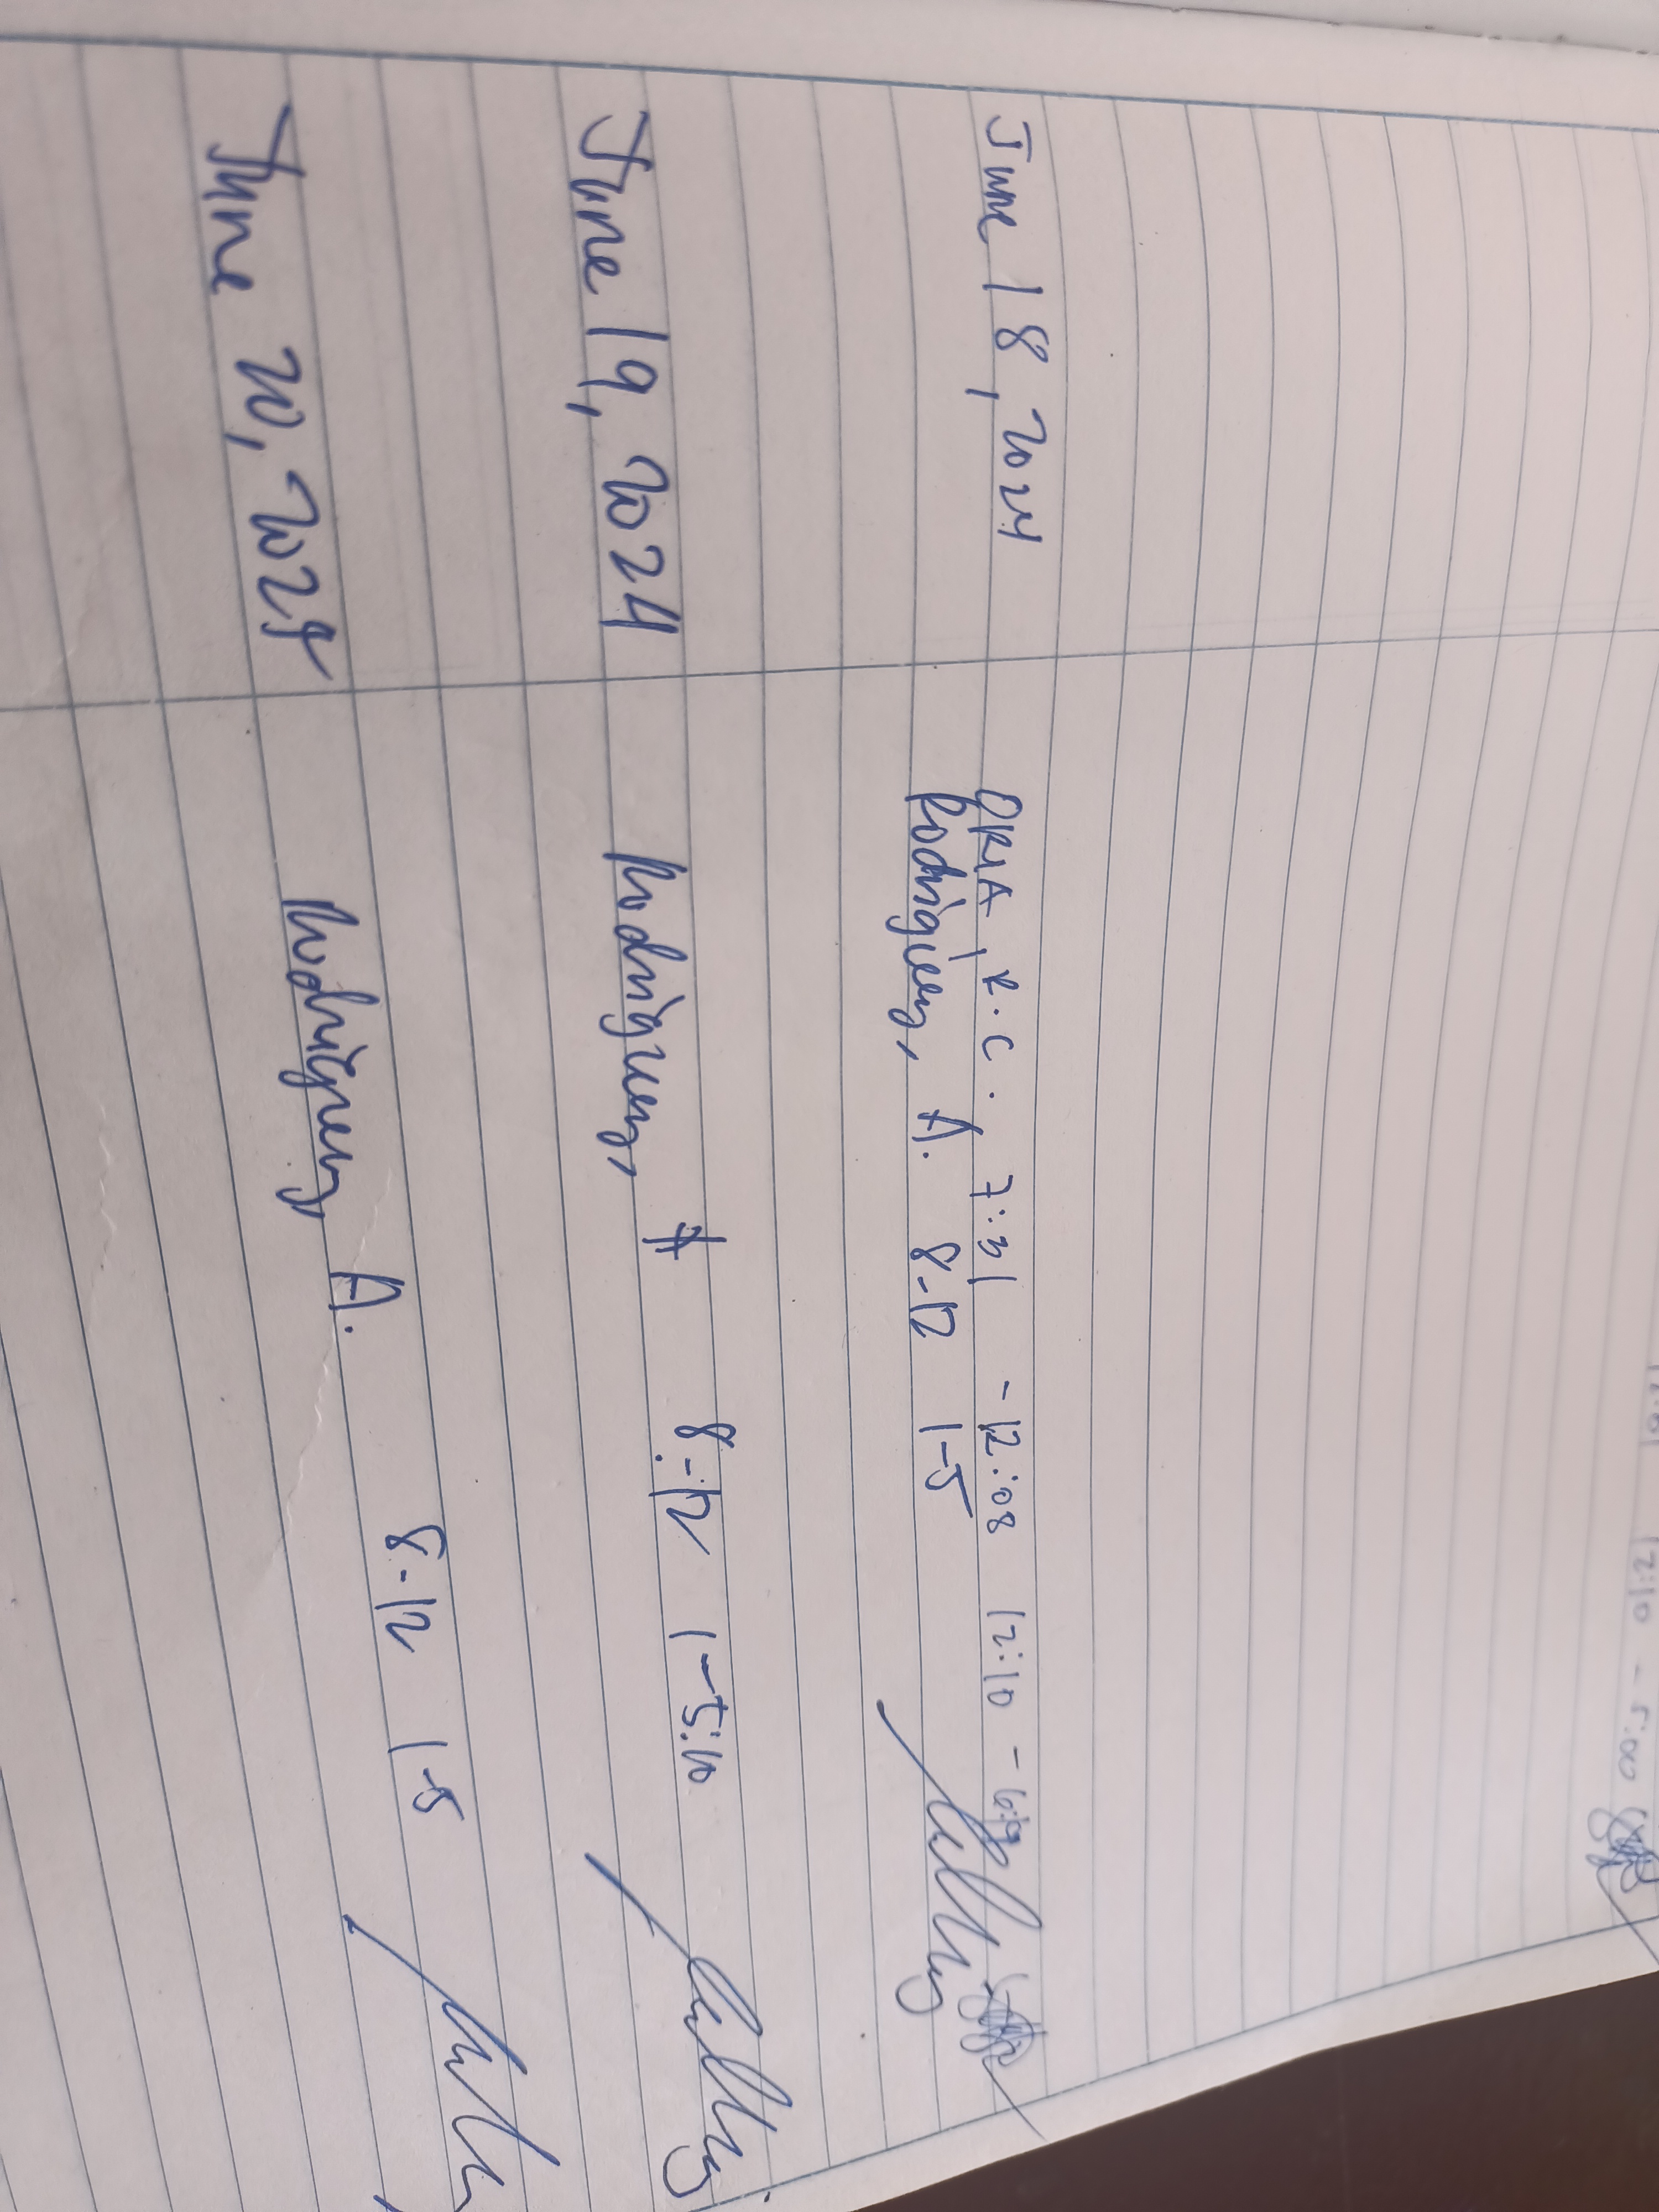 June 18, 2024 ORIA, R.C. 7:31 - 12:08 12:10 -
Rodriguez, A. 8-12 1-5
June 19, 2024 Rodriguez, A 8-12 1-5:10
June 20, 2024 Rodriguez, A. 8-12 1-5
12:10 - 5:00